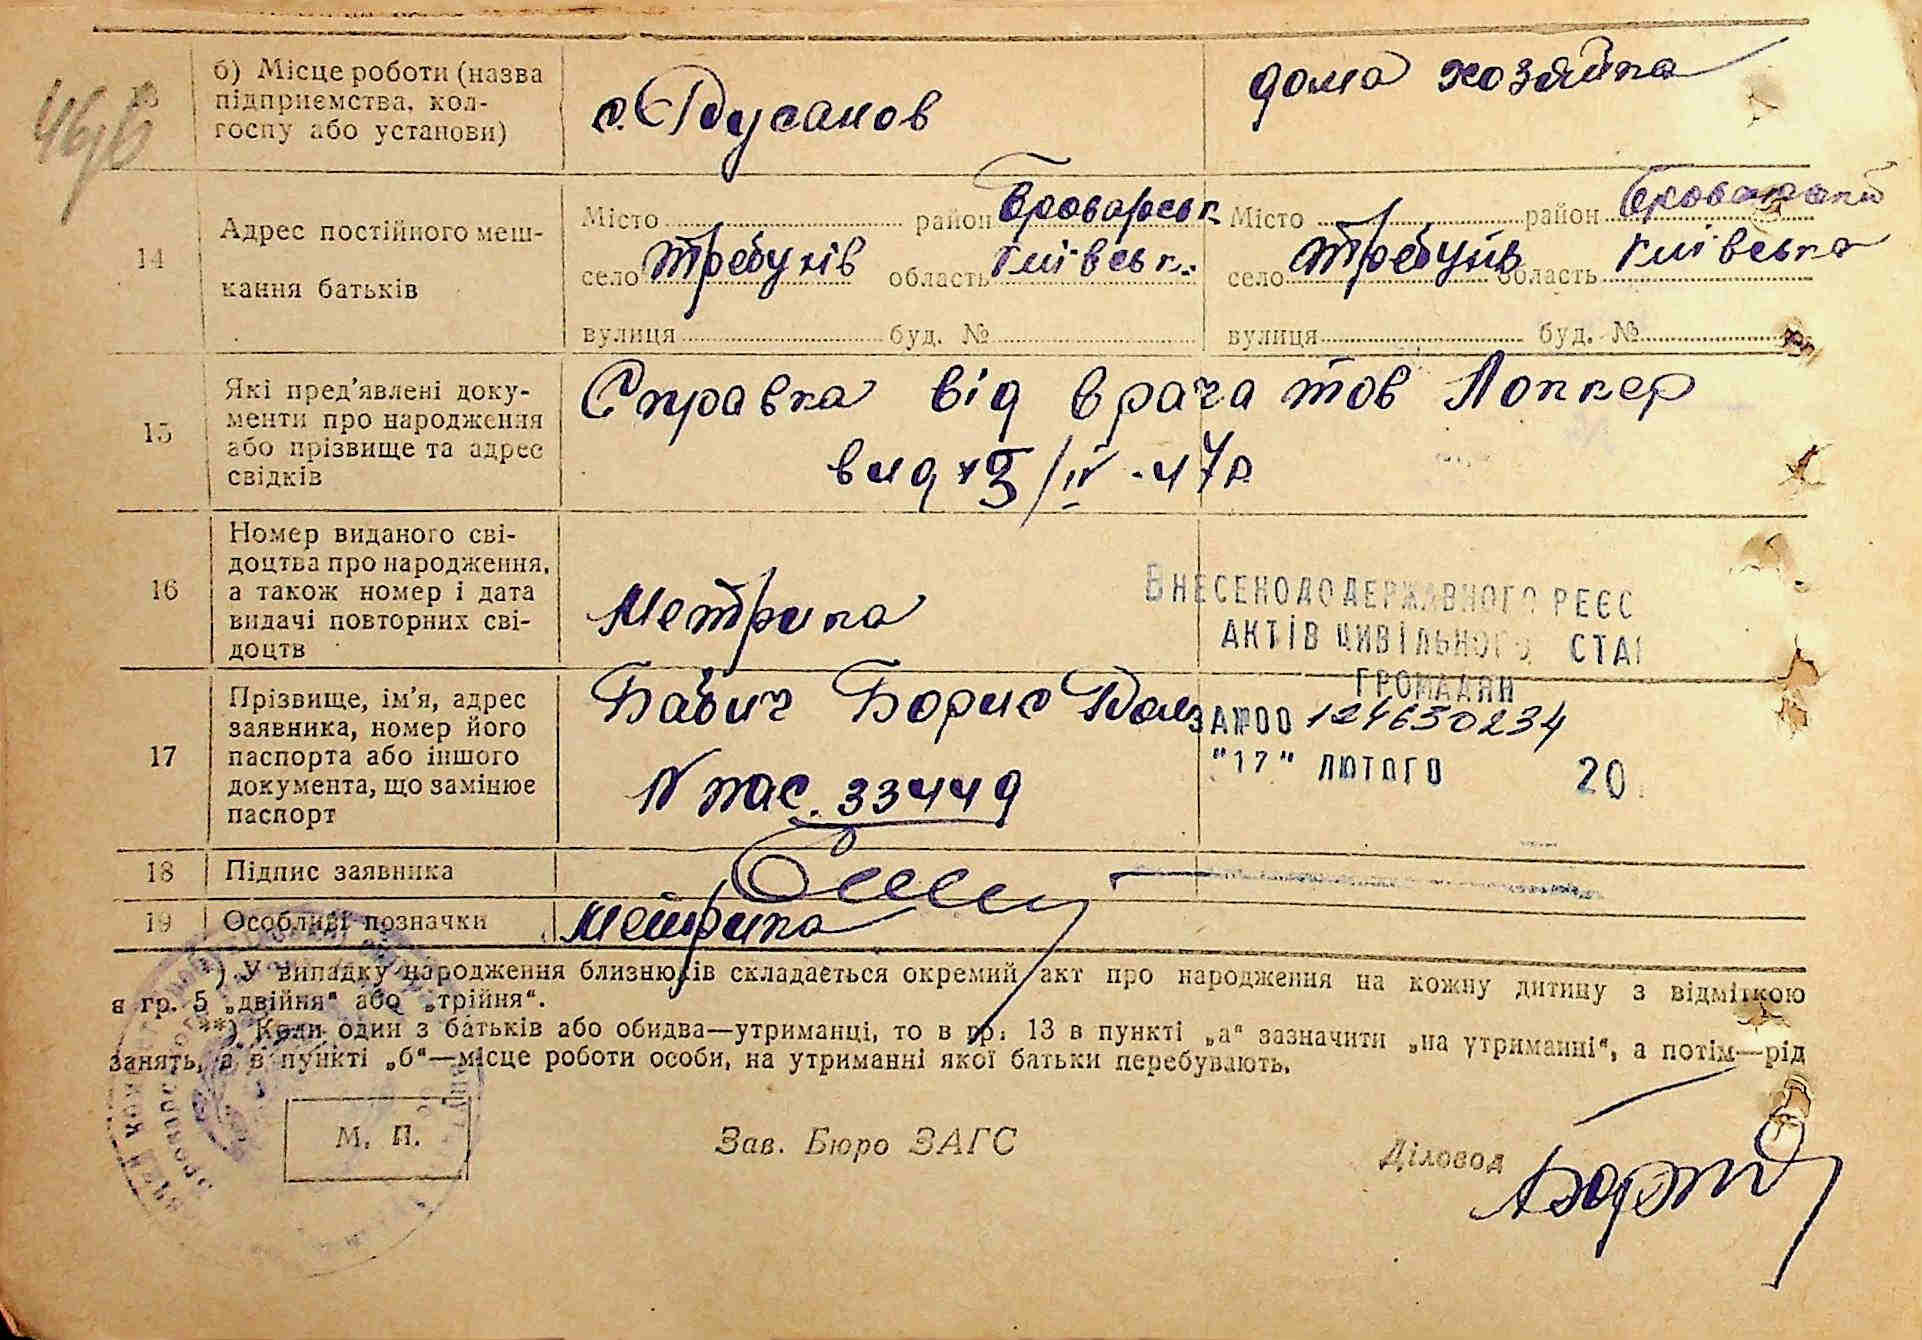 13
б) Місце роботи (назва
підприємства, кол-
госпу або установи)
дома хозяйка
46/6
14
Адрес постійного меш-
кання батьків
Місто район Броварськ.
село Требухів область Київськ.
вулиця буд. №
Місто район
село Требухів область Київська
вулиця буд. №
15
Які пред'явлені доку-
менти про народження
або прізвище та адрес
свідків
Справка від врача тов
вид /IV-47р
16
Номер виданого сві-
доцтва про народження,
а також номер і дата
видачі повторних сві-
доцтв
Метрика
ВНЕСЕНО ДО ДЕРЖАВНОГО РЕЄС
АКТІВ ЦИВІЛЬНОГО СТА
ГРОМАДЯН
ЗА №00 124650234
"17" ЛЮТОГО 20
17
Прізвище, ім'я, адрес
заявника, номер його
паспорта або іншого
документа, що замінює
паспорт
Бабич Борис
N пас. 334449
18
Підпис заявника
19
Особливі позначки
Метрика
*) У випадку народження близнюків складається окремий акт про народження на кожну дитину з відміткою
в гр. 5 „двійня“ або „трійня“.
**) Коли один з батьків або обидва—утриманці, то в гр. 13 в пункті „а“ зазначити „на утриманні“, а потім—рід
занять, а в пункті „б“—місце роботи особи, на утриманні якої батьки перебувають.
М. П.
Зав. Бюро ЗАГС
Діловод